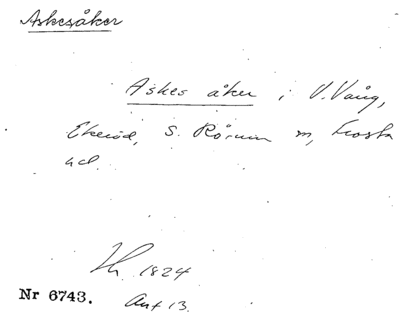 Askesåker
Askes åker i V. Vång,
Ekeröd, S. Rörum m, Frosta
hd.
Th. 1824
Nr 6743. Anf 13.